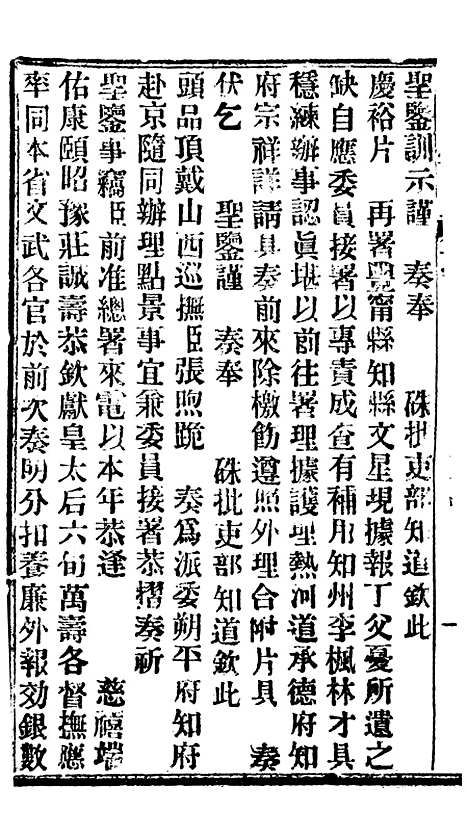 聖鑒訓示謹 奏奉 硃批吏部知道欽此
慶裕片 再署豐甯縣知縣文星現據報丁父憂所遺之
缺自應委員接署以專責成查有補用知州李楓林才具
穩練辦事認眞堪以前往署理據護理熱河道承德府知
府宗祥詳請具奏前來除檄飭遵照外理合附片具 奏
伏乞 聖鑒謹 奏奉 硃批吏部知道欽此
頭品頂戴山西巡撫臣張煦跪 奏爲派委朔平府知府
赴京隨同辦理點景事宜兼委員接署恭摺奏祈
聖鑒事竊臣前准總署來電以本年恭逢 慈禧端
佑康頤昭豫莊誠壽恭欽獻皇太后六旬萬壽各督撫應
率同本省文武各官於前次奏明分扣養廉外報効銀數
一